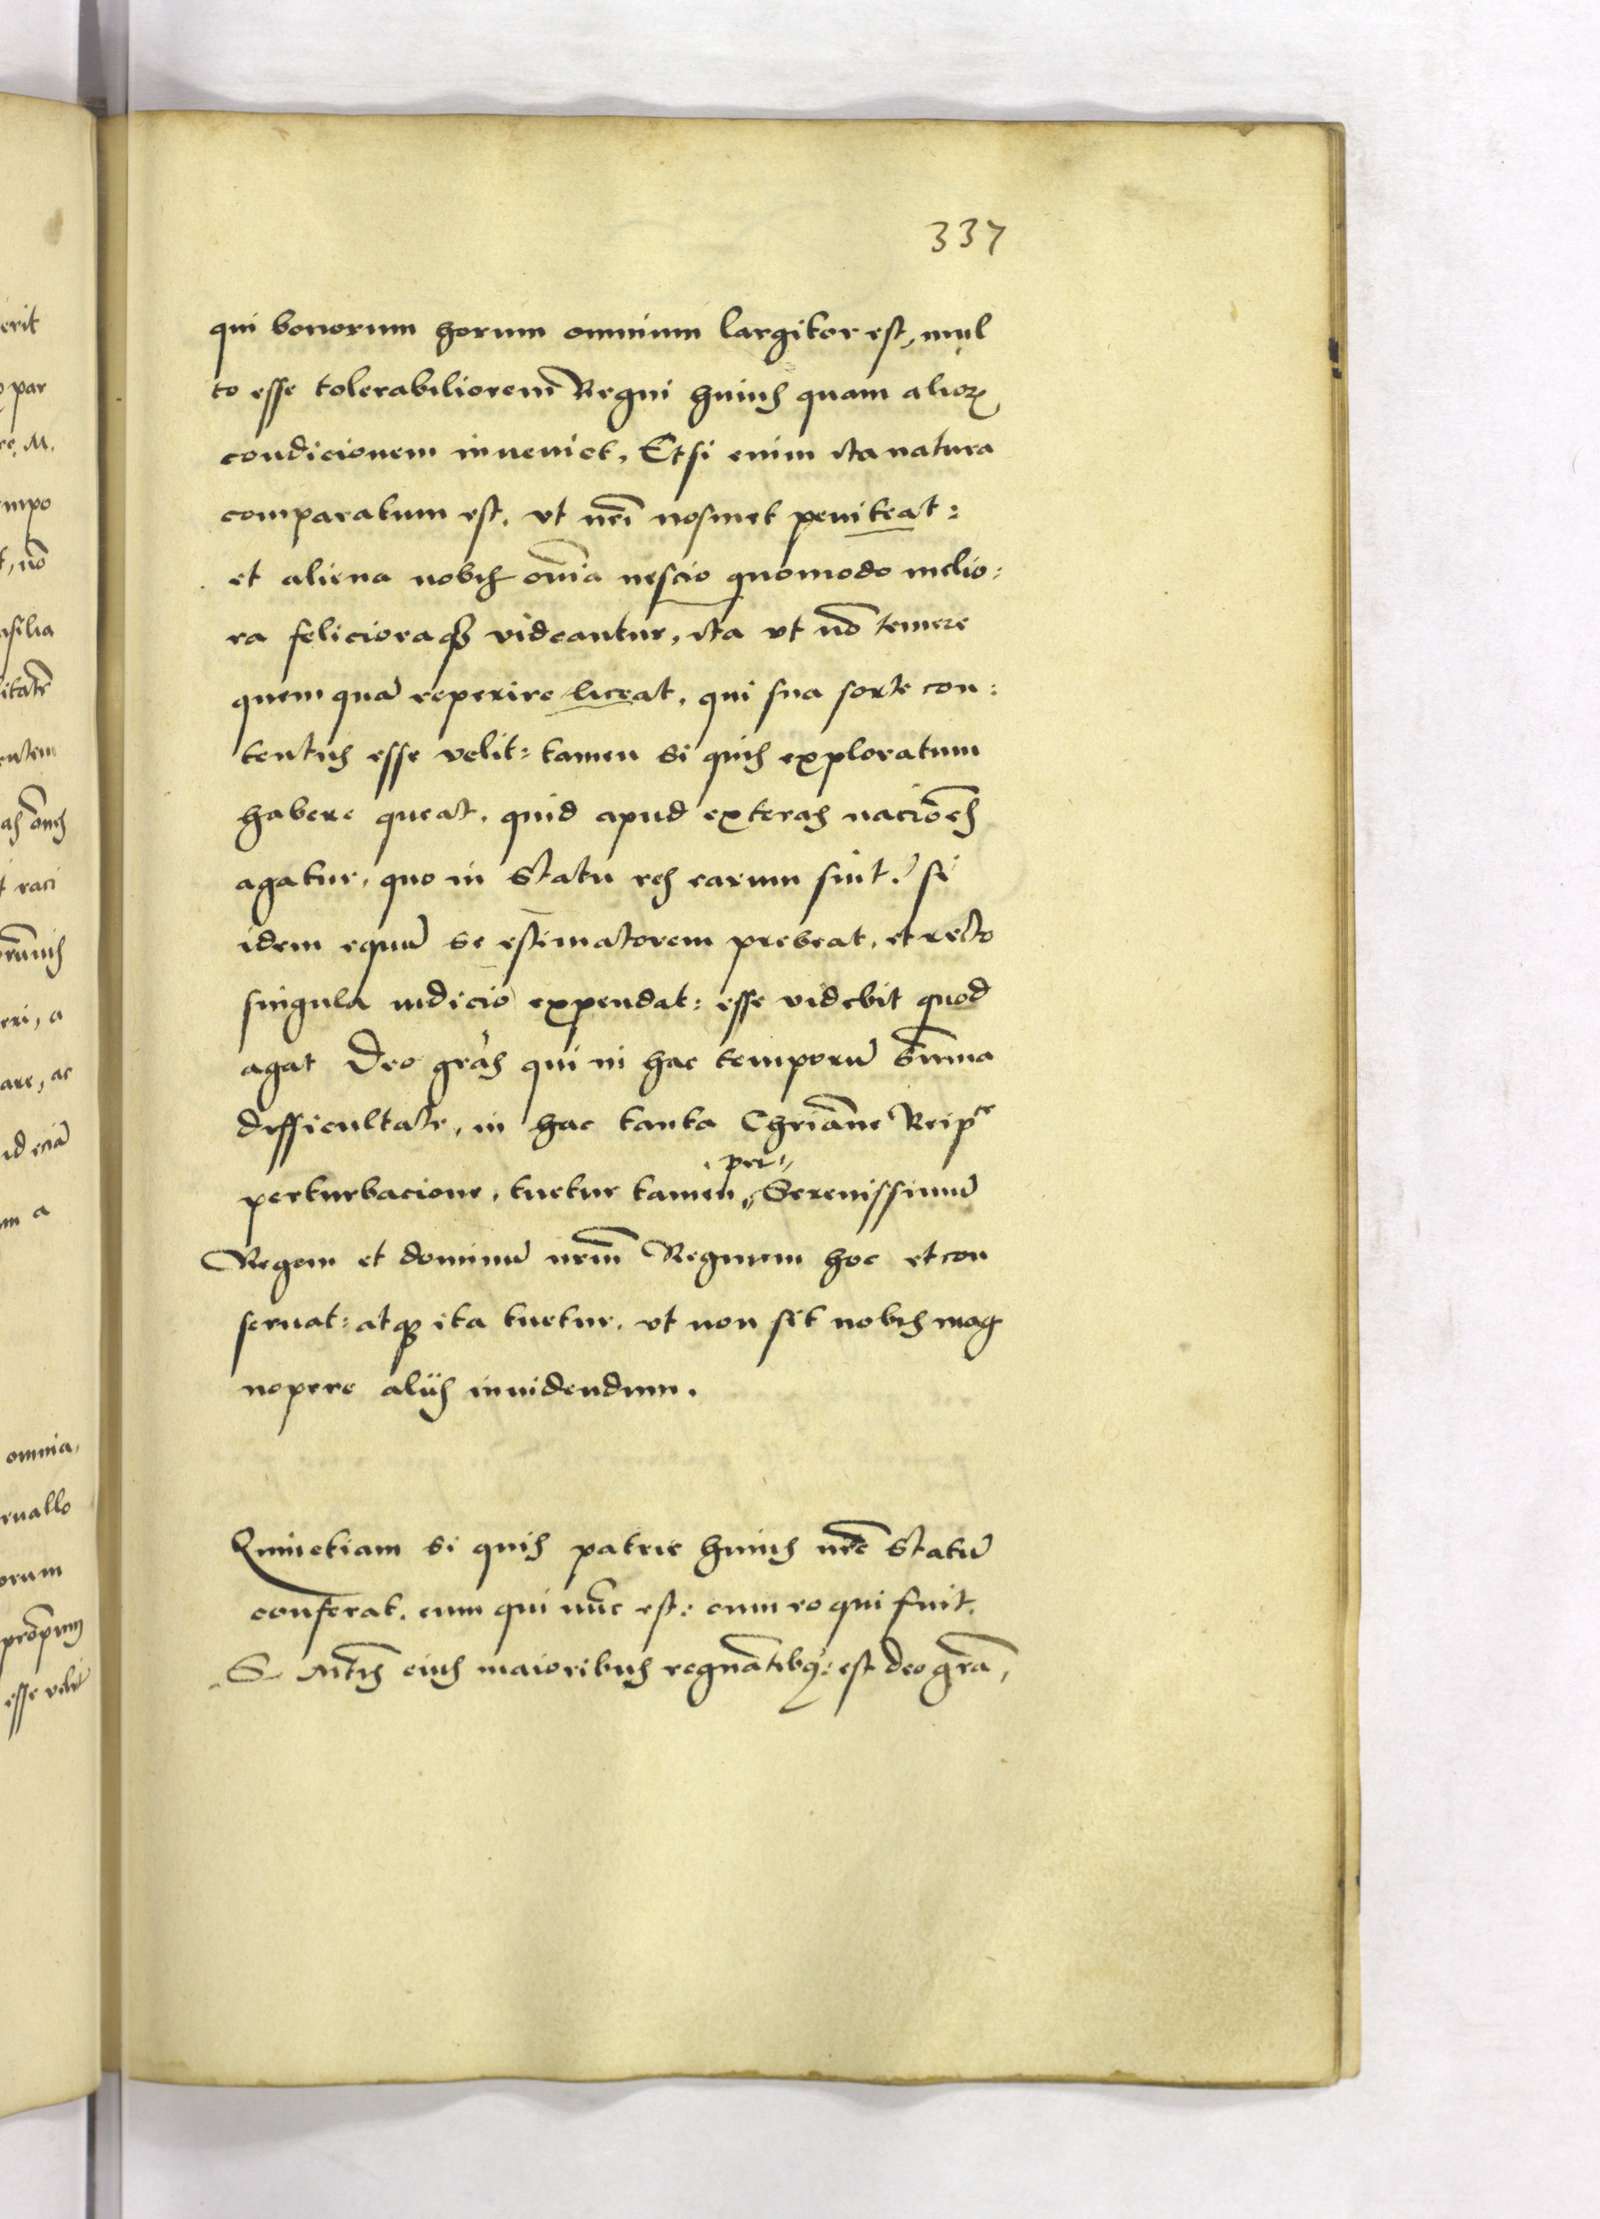 337
qui bonorum horum omnium largitor est, mul
to esse tolerabiliorem Regni huius quam alioꝝ
condicionem inveniet. Etsi enim ita natura
comparatum est, vt nr̄i nosmet peniteat:
et aliena nobis om̄ia nescio quomodo melio:
ra felicioraqꝫ videantur, ita vt nō temere
quemquā reperire liceat, qui sua sorte con:
tentus esse velit: tamen si quis exploratum
habere queat, quid apud exteras nacīoes
agatur, quo in statu res earum sint: si
idem equū se estimatorem prebeat, et recto
singula iudicio expendat: esse videbit quod
agat Deo grās qui in hac temporū sūmma
difficultate, in hac tanta Chriāne Reipce
perturbacione, tuetur tamen per Serenissimū
Regem et dominū nrm̄ Regnum hoc et con
seruat: atqꝫ ita tuetur, vt non sit nobis mag
nopere aliis inuidendum.
Quinetiam si quis patrie huius nr̄e statū
conferat, eum qui nūc est: cum eo qui fuit,
S Mtis eius maioribus regnātibꝰ: est deo grā,
erit
par
re. M.
empo
t, nō
itatē
entem
as ōnes
t raci
eri, a
are, ac
id eciā
m a
omnia,
ruallo
orum
esse velit